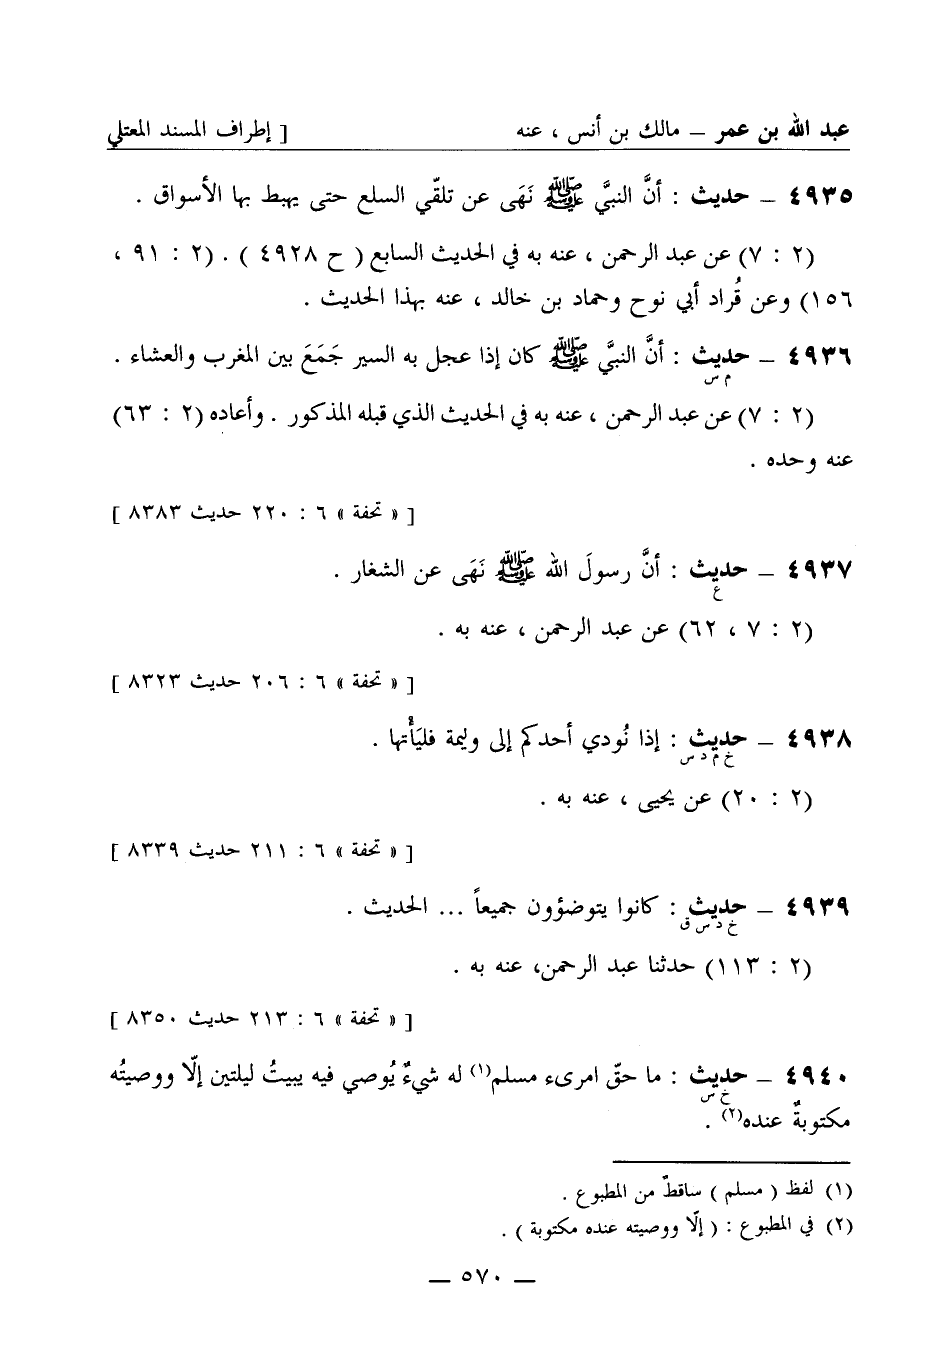 عبد الله بن عمر – مالك بن أنس ، عنه [ إطراف المسند المعتلي
٤٩٣٥ – حديث : أنَّ النبيَّ ﷺ نَهَى عن تلقّي السلع حتى يهبط بها الأسواق .
(٢ : ٧) عن عبد الرحمن ، عنه به في الحديث السابع ( ح ٤٩٢٨ ) . (٢ : ٩١ ،
١٥٦) وعن قُراد أبي نوح وحماد بن خالد ، عنه بهذا الحديث .
٤٩٣٦ – حديث : أنَّ النبيَّ ﷺ كان إذا عجل به السير جَمَعَ بين المغرب والعشاء .
م س
(٢ : ٧) عن عبد الرحمن ، عنه به في الحديث الذي قبله المذكور . وأعاده (٢ : ٦٣)
عنه وحده .
[ « تحفة » ٦ : ٢٢٠ حديث ٨٣٨٣ ]
٤٩٣٧ – حديث : أنَّ رسولَ الله ﷺ نَهَى عن الشغار .
ع
(٢ : ٧ ، ٦٢) عن عبد الرحمن ، عنه به .
[ « تحفة » ٦ : ٢٠٦ حديث ٨٣٢٣ ]
٤٩٣٨ – حديث : إذا نُودي أحدكم إلى وليمة فليَأْتها .
خ م د س
(٢ : ٢٠) عن يحيى ، عنه به .
[ « تحفة » ٦ : ٢١١ حديث ٨٣٣٩ ]
٤٩٣٩ – حديث : كانوا يتوضؤون جميعاً ... الحديث .
خ د س ق
(٢ : ١١٣) حدثنا عبد الرحمن، عنه به .
[ « تحفة » ٦ : ٢١٣ حديث ٨٣٥٠ ]
٤٩٤٠ – حديث : ما حقّ امرىء مسلم(١) له شيءٌ يُوصي فيه يبيتُ ليلتين إلّا ووصيتُه
خ س
مكتوبةٌ عنده(٢) .
(١) لفظ ( مسلم ) ساقطٌ من المطبوع .
(٢) في المطبوع : ( إلّا ووصيته عنده مكتوبة ) .
– ٥٧٠ –